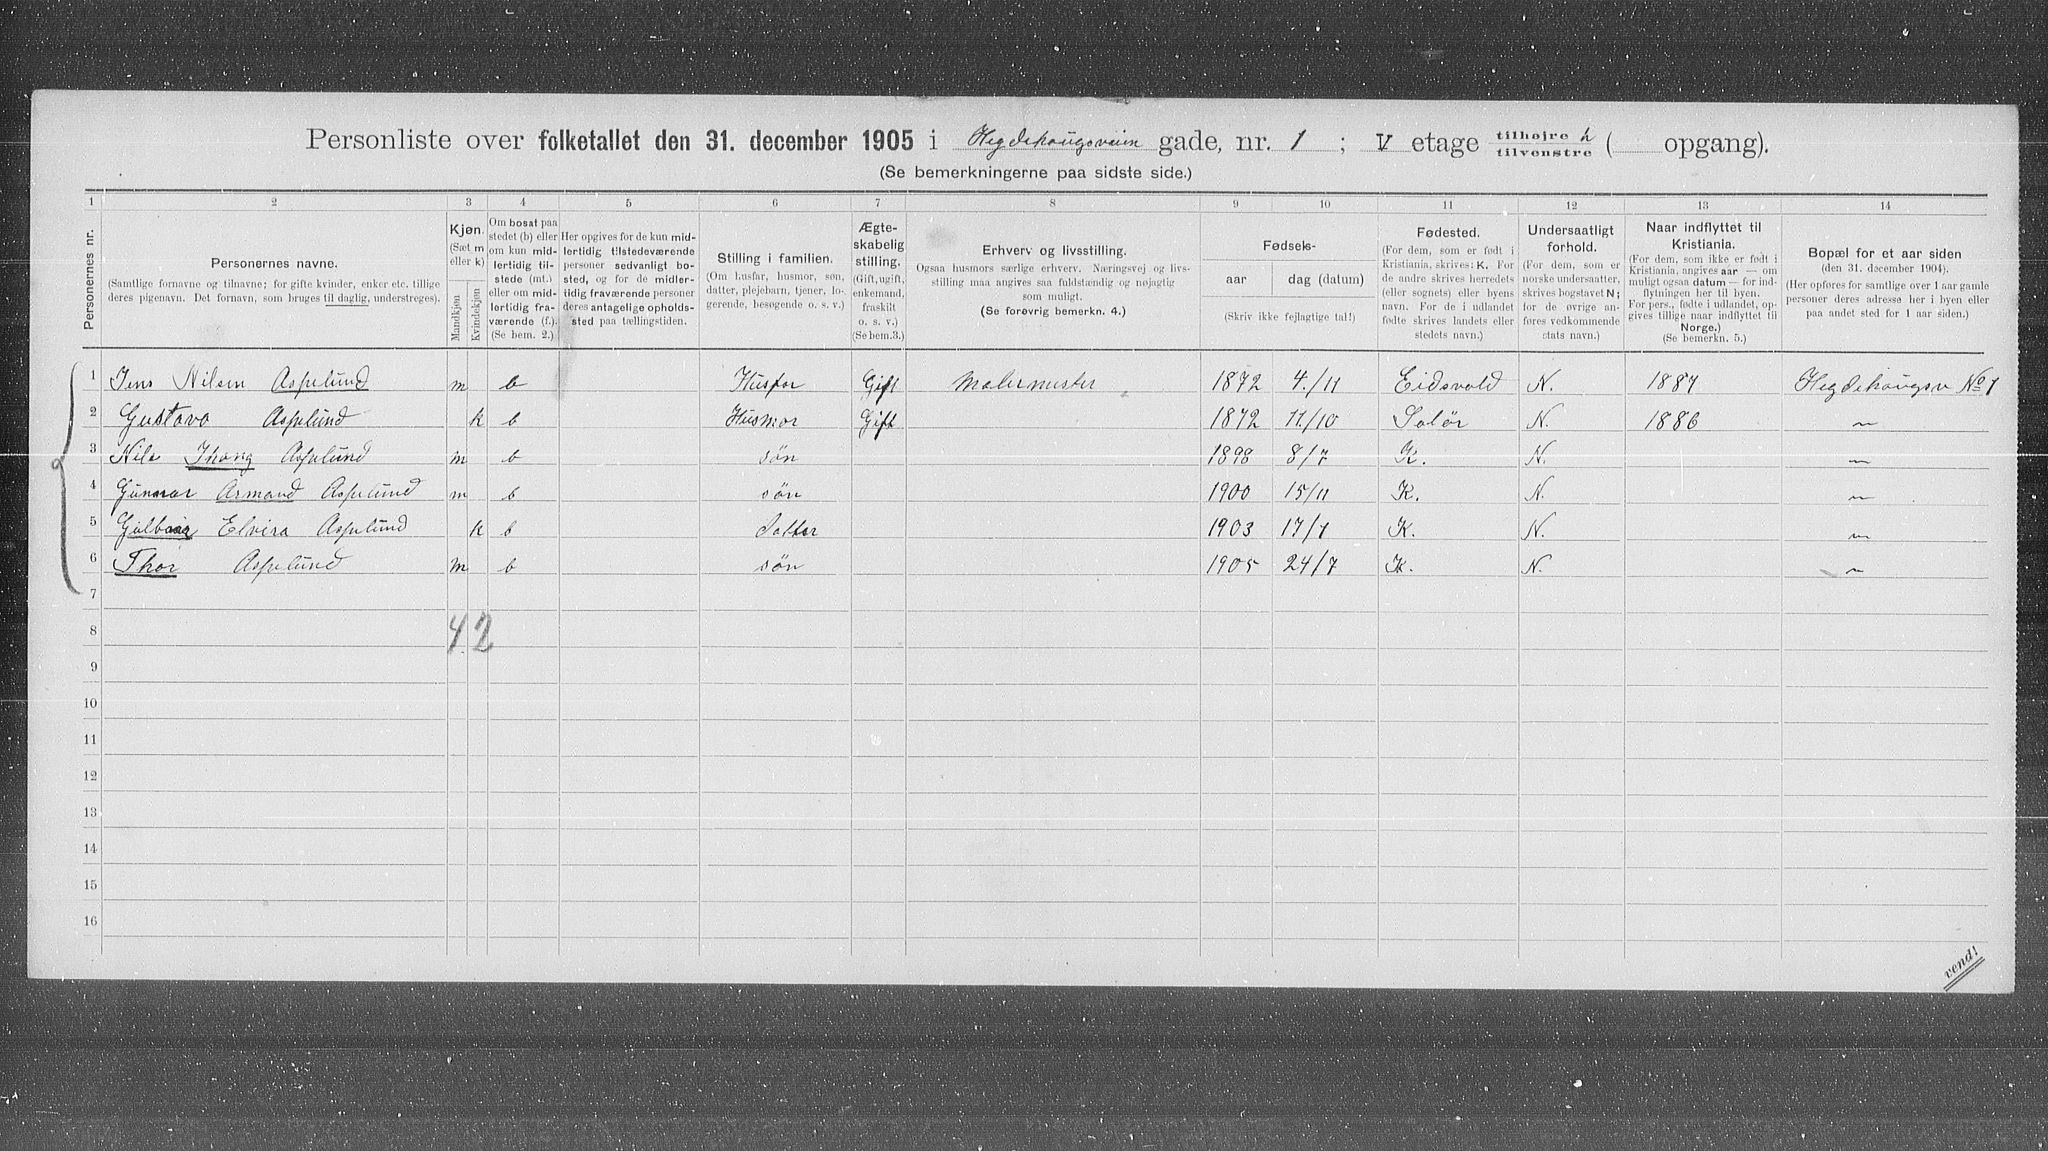 Personliste over folketallet den 31. december 1905 i Hegdehaugsveien gade, nr. 1 ; V etage tilhøjre h ( opgang).
tilvenstre
(Se bemerkningerne paa sidste side.)
1 2 3 4 5 6 7 8 9 10 11 12 13 14
Personernes nr.
Personernes navne.
(Samtlige fornavne og tilnavne; for gifte kvinder, enker etc. tillige
deres pigenavn. Det fornavn, som bruges til daglig, understreges).
Kjøn.
(Sæt m
eller k)
Mandkjøn
Kvindekjøn
Om bosat paa
stedet (b) eller
om kun mid-
lertidig til-
stede (mt.)
eller om mid-
lertidig fra-
værende (f.).
(Se bem. 2.)
Her opgives for de kun mid-
lertidig tilstedeværende
personer sedvanligt bo-
sted, og for de midler-
tidig fraværende personer
deres antagelige opholds-
sted paa tællingstiden.
Stilling i familien.
(Om husfar, husmor, søn,
datter, plejebarn, tjener, lo-
gerende, besøgende o. s. v.)
Ægte-
skabelig
stilling.
(Gift, ugift,
enkemand,
fraskilt
o. s. v.)
(Se bem.3.)
Erhverv og livsstilling.
Ogsaa husmors særlige erhverv. Næringsvej og livs-
stilling maa angives saa fuldstændig og nøjagtig
som muligt.
(Se forøvrig bemerkn. 4.)
Fødsels-
aar dag (datum)
(Skriv ikke fejlagtige tal!)
Fødested.
(For dem, som er født i
Kristiania, skrives: K. For
de andre skrives herredets
(eller sognets) eller byens
navn. For de i udlandet
fødte skrives landets eller
stedets navn.)
Undersaatligt
forhold.
(For dem, som er
norske undersaatter,
skrives bogstavet N;
for de øvrige an-
føres vedkommende
stats navn.)
Naar indflyttet til
Kristiania.
(For dem, som ikke er født i
Kristiania, angives aar — om
muligt ogsaa datum — for ind-
flytningen her til byen.
For pers., fødte i udlandet, op-
gives tillige naar indflyttet til
Norge.)
(Se bemerkn. 5.)
Bopæl for et aar siden
(den 31. december 1904).
(Her opføres for samtlige over 1 aar gamle
personer deres adresse her i byen eller
paa andet sted for 1 aar siden.)
1 Jens Nilsen Aspelund m b Husfar Gift Malermester 1872 4./11 Eidsvold N. 1887 Hegdehaugsv No 1
2 Gustava Aspelund k b Husmor Gift 1872 11/10 Solör N. 1886 "
3 Nils Thong Aspelund m b sön 1898 8/7 K. N. "
4 Gunnar Armand Aspelund m b sön 1900 15/11 K. N. "
5 Elvira Aspelund k b Datter 1903 17/7 K. N. "
6 Thor Aspelund m b sön 1905 24/7 K. N. "
7
8 4.2
9
10
11
12
13
14
15
16
vend!